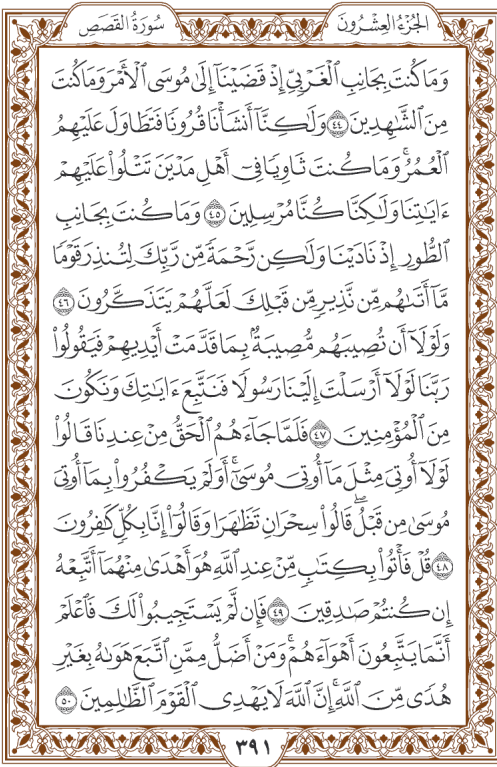 الجُزْءُ العِشْرُونَ
سُورَةُ القَصَصِ
وَمَا كُنتَ بِجَانِبِ ٱلْغَرْبِيِّ إِذْ قَضَيْنَآ إِلَىٰ مُوسَى ٱلْأَمْرَ وَمَا كُنتَ
مِنَ ٱلشَّٰهِدِينَ ٤٤ وَلَٰكِنَّآ أَنشَأْنَا قُرُونًا فَتَطَاوَلَ عَلَيْهِمُ
ٱلْعُمُرُۚ وَمَا كُنتَ ثَاوِيًا فِىٓ أَهْلِ مَدْيَنَ تَتْلُواْ عَلَيْهِمْ
ءَايَٰتِنَا وَلَٰكِنَّا كُنَّا مُرْسِلِينَ ٤٥ وَمَا كُنتَ بِجَانِبِ
ٱلطُّورِ إِذْ نَادَيْنَا وَلَٰكِن رَّحْمَةً مِّن رَّبِّكَ لِتُنذِرَ قَوْمًا
مَّآ أَتَىٰهُم مِّن نَّذِيرٍ مِّن قَبْلِكَ لَعَلَّهُمْ يَتَذَكَّرُونَ ٤٦
وَلَوْلَآ أَن تُصِيبَهُم مُّصِيبَةٌۢ بِمَا قَدَّمَتْ أَيْدِيهِمْ فَيَقُولُواْ
رَبَّنَا لَوْلَآ أَرْسَلْتَ إِلَيْنَا رَسُولًا فَنَتَّبِعَ ءَايَٰتِكَ وَنَكُونَ
مِنَ ٱلْمُؤْمِنِينَ ٤٧ فَلَمَّا جَآءَهُمُ ٱلْحَقُّ مِنْ عِندِنَا قَالُواْ
لَوْلَآ أُوتِىَ مِثْلَ مَآ أُوتِىَ مُوسَىٰٓۚ أَوَلَمْ يَكْفُرُواْ بِمَآ أُوتِىَ
مُوسَىٰ مِن قَبْلُۖ قَالُواْ سِحْرَانِ تَظَٰهَرَا وَقَالُوٓاْ إِنَّا بِكُلٍّ كَٰفِرُونَ
٤٨ قُلْ فَأْتُواْ بِكِتَٰبٍ مِّنْ عِندِ ٱللَّهِ هُوَ أَهْدَىٰ مِنْهُمَآ أَتَّبِعْهُ
إِن كُنتُمْ صَٰدِقِينَ ٤٩ فَإِن لَّمْ يَسْتَجِيبُواْ لَكَ فَٱعْلَمْ
أَنَّمَا يَتَّبِعُونَ أَهْوَآءَهُمْۚ وَمَنْ أَضَلُّ مِمَّنِ ٱتَّبَعَ هَوَىٰهُ بِغَيْرِ
هُدًى مِّنَ ٱللَّهِۚ إِنَّ ٱللَّهَ لَا يَهْدِى ٱلْقَوْمَ ٱلظَّٰلِمِينَ ٥٠
٣٩١